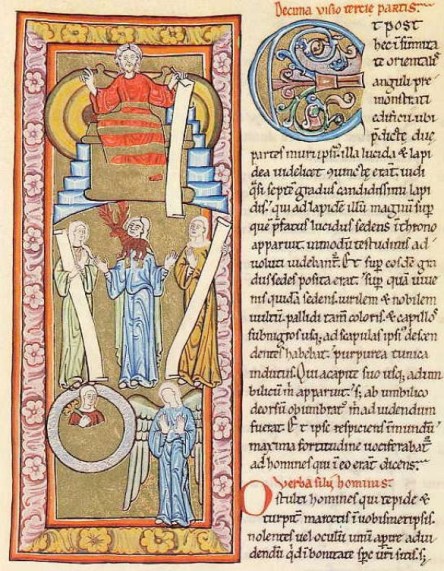 Decima visio tercie partis:
Et post
hec ī sūmita
te orientalis
anguli pre
monstrati
edificii ubi
p̄dictę duę
partes muri ipsi' illa lucida & lapi
dea videlicet ꝯiuncte erāt uidi
q̄si septē gradus candidissimi lapi
dis: qui ad lapidē illū magnū sup̄
quē p̄fatus lucidus sedens ī throno
apparuit. in modū testudinis ad
voluti videbant̄. Et sup̄ eosdē gra
dus sedes posita erat: sup̄ quā iuve
nis quidā sedens. virilem & nobilem
vultū pallidi tam̄ coloris. & capillos
subnigros usq; ad scapulas ipsi' descen
dentes habebat. purpurea tunica
indutus. Qui a capite suo usq; ad um
bilicū m̄ apparuit. s; ab umbilico
deorsū obumbrat' m̄ ad uidendum
fuerat. Et ipse respiciens ī mundū
maxima fortitudine vociferabat̄
ad homines qui ī eo erāt dicens:
Verba filii hominis:
O stulti homines qui tepide &
turpit̄ marcetis ī uobismetipsis.
nolentes vel oculū unū apire ad ui
dendū qd ī bonitate ur̄i sitis. s;